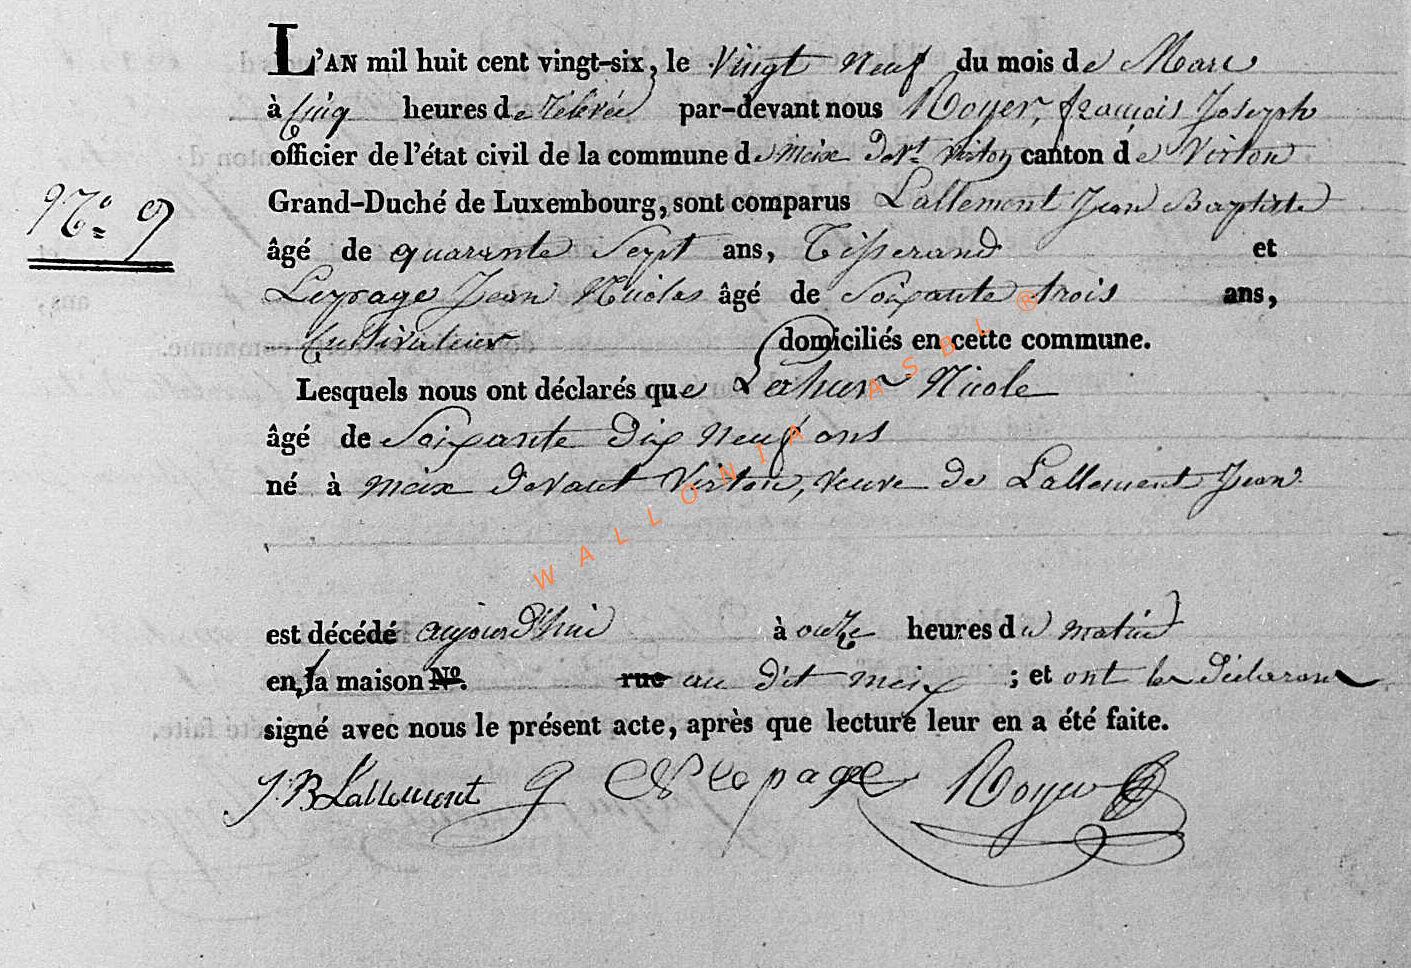 L'AN mil huit cent vingt-six, le vingt neuf du mois de Mars
à cinq heures de relevée par-devant nous Royer, françois Joseph
officier de l'état civil de la commune de meix devt virton canton de Virton
Grand-Duché de Luxembourg, sont comparus Lallement Jean Baptiste
N.o 9
âgé de quarante Sept ans, Tisserand et
Lepage Jean Nicolas âgé de Soixante trois ans,
Cultivateur domiciliés en cette commune.
Lesquels nous ont déclarés que Lahur Nicole
âgé de Soixante dix neuf ans
né à meix devant Virton, veuve de Lallement Jean
WALLONIA ASBL ®
est décédé aujourd'hui à onze heures du matin
en la maison No. rue au dit meix ; et ont les déclarans
signé avec nous le présent acte, après que lecture leur en a été faite.
J.B Lallement J N lepage Royer